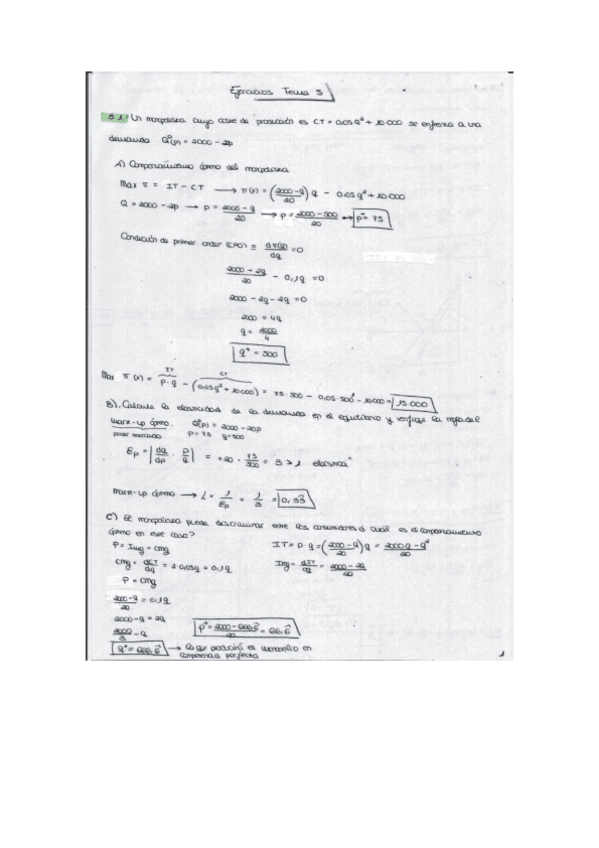 Ejercicios Tema 5
5.1. Un monopolista cuyo coste de producción es CT = 0,05Q² + 10.000 se enfrenta a una
demanda Qᵈ(p) = 2000 - 2p
A) Comportamiento óptimo del monopolista
Max π = IT - CT → π(x) = (2000-Q/20) Q - 0,05Q² + 10.000
Q = 2000 - 2p → p = 2000-Q/20 → p = 2000-500/20 → p* = 75
Condición de primer orden (CPO) = dπ(q)/dq = 0
2000-2q/20 - 0,1q = 0
2000 - 2q - 2q = 0
2000 = 4q
q = 2000/4
q* = 500
IT CT
Max π(x) = p·q - (0,05q² + 10.000) = 75·500 - 0,05·500² - 10.000 = 15.000
B). Calcule la elasticidad de la demanda en el equilibrio y verifique la regla del
mark-up óptimo. Qᵈ(p) = 2000 - 20p
poder mercado p = 75 q = 500
Ep = |dq/dp · p/q| = +20 · 75/500 = 3 > 1 elástica
mark-up óptimo → L = 1/Ep = 1/3 = 0,33
C) El monopolista puede discriminar entre los consumidores ¿Cuál es el comportamiento
óptimo en este caso?
P = Img = Cmg IT = P·Q = (2000-Q/20) Q = 2000Q-Q²/20
Cmg = dCT/dq = 2·0,05q = 0,1q Img = dIT/dq = 2000-2q/20
P = Cmg
2000-q/20 = 0,1q
2000-q = 2q
2000/3 = q p* = 2000-666,6/20 = 66,6
q* = 666,6 → Lo que produciría el monopolio en
competencia perfecta